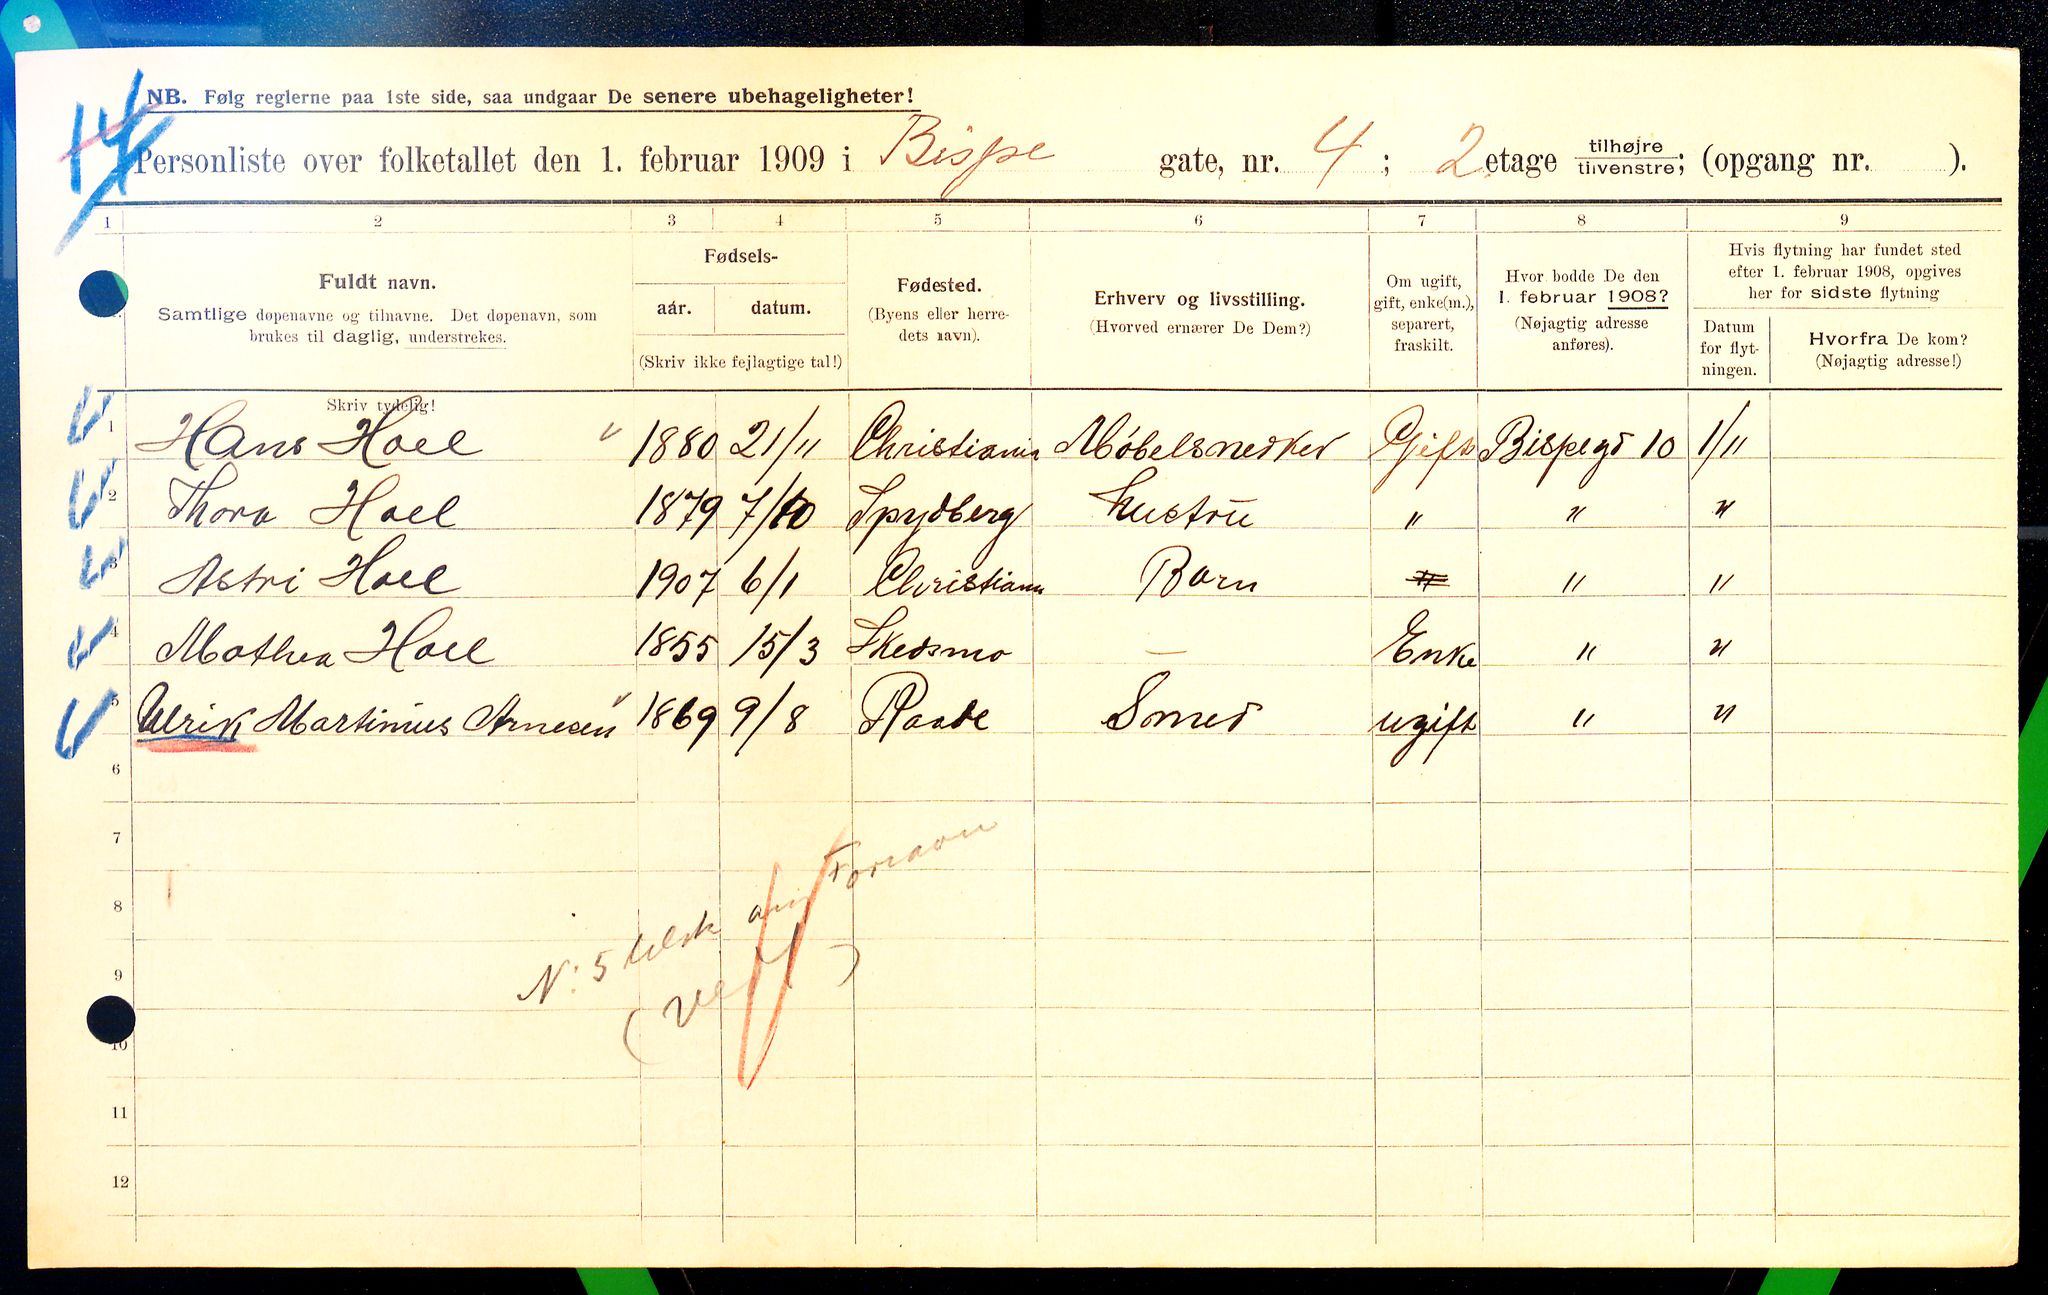 14
NB. Følg reglerne paa 1ste side, saa undgaar De senere ubehageligheter!
Personliste over folketallet den 1. februar 1909 i Bispe gate, nr. 4 ; 2 etage tilhøjre / tilvenstre ; (opgang nr. ).
1 2 3 4 5 6 7 8 9
Fuldt navn.
Samtlige døpenavne og tilnavne. Det døpenavn, som
brukes til daglig, understrekes.
Skriv tydelig!
Fødsels-
aar. datum.
(Skriv ikke fejlagtige tal!)
Fødested.
(Byens eller herre-
dets navn).
Erhverv og livsstilling.
(Hvorved ernærer De Dem?)
Om ugift,
gift, enke(m.),
separert,
fraskilt.
Hvor bodde De den
1. februar 1908?
(Nøjagtig adresse
anføres).
Hvis flytning har fundet sted
efter 1. februar 1908, opgives
her for sidste flytning
Datum
for flyt-
ningen.
Hvorfra De kom?
(Nøjagtig adresse!)
1 Hans Hoel 1880 21/11 Christiania Møbelsnedker Gift Bispegd 10 1/11
2 Thora Hoel 1879 7/10 Spydberg hustru " " "
3 Astri Hoel 1907 6/1 Christiania Barn " "
4 Mathea Hoel 1855 15/3 Skedsmo — Enke " "
5 Ulrik Martinius Arnesen 1869 9/8 Raade Smed ugift " "
6
7
8
9
10
11
12
N: 5 Ulrik Fornavn